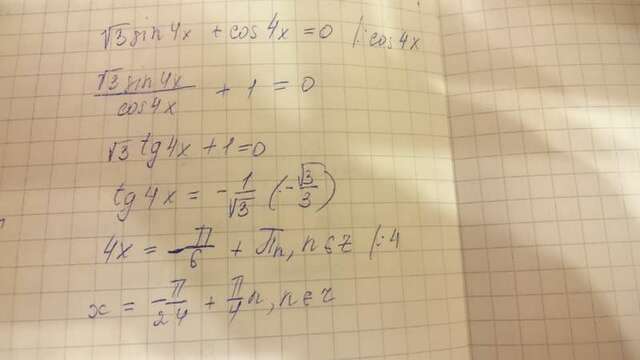 √3 sin 4x + cos 4x = 0 /: cos 4x
√3 sin 4x / cos 4x + 1 = 0
√3 tg 4x + 1 = 0
tg 4x = - 1/√3 (- √3/3)
4x = - π/6 + πn, n ∈ z /: 4
x = - π/24 + π/4 n, n ∈ z